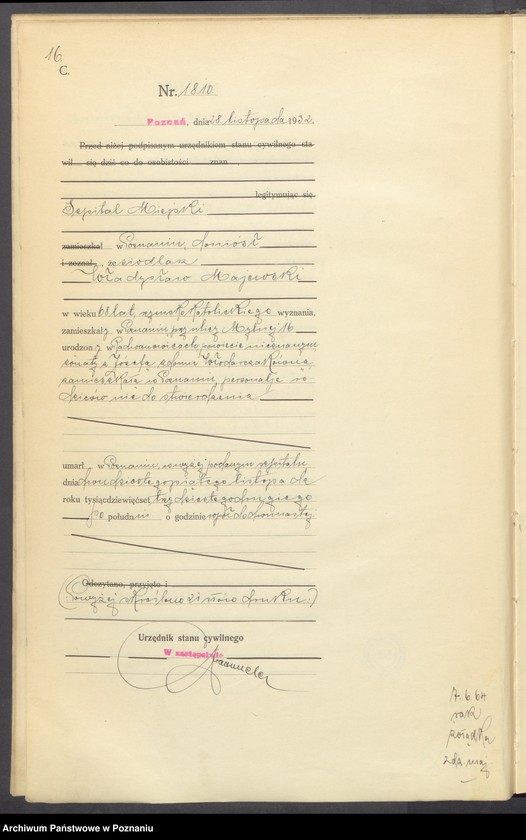 16
C.
Nr. 1810
Poznań, dnia 28 listopada 1932.
Przed niżej podpisanym urzędnikiem stanu cywilnego sta
wił się dziś co do osobistości znan
legitymując się
Szpital Miejski
zamieszkał w Poznaniu, doniósł
i zeznał, że siodlarz
Władysław Majewski
w wieku 68 lat, rzymskokatolickiego wyznania,
zamieszkały w Poznaniu, przy ulicy Młyńskiej 16
urodzony w powiecie
żonaty z Józefą z domu Włodarczakówną,
zamieszkałą w Poznaniu, personalje ro-
dziców nie do stwierdzenia
umarł w Poznaniu, w wyżej podanym szpitalu
dnia dwudziestego piątego listopada
roku tysiącdziewięćset trzydziestego drugiego
po południu o godzinie wpół do
Odczytano, przyjęto i
(Powyżej skreślono 21 słów druku.)
Urzędnik stanu cywilnego
W zastępstwie
7. 6. 64
rak
żołądka
żda maj
Archiwum Państwowe w Poznaniu